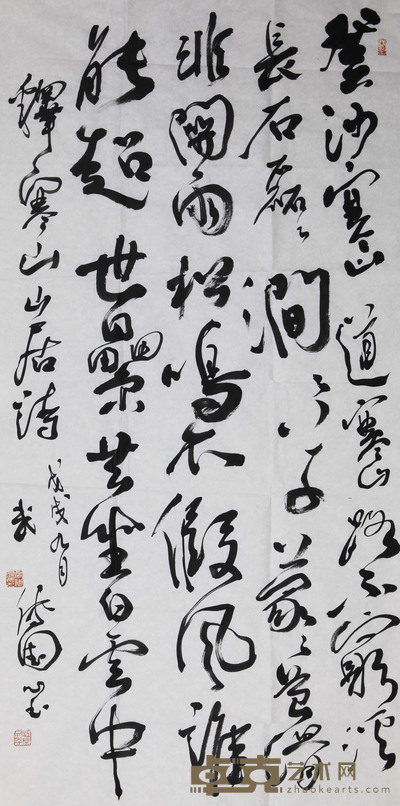 登陟寒山道寒山路不窮溪
長石磊々澗闊草蒙々苔滑
非關雨松鳴不假風誰
能超世累共坐白雲中
釋寒山山居詩
戊戌九月
卓克艺术网
zhuokearts.com